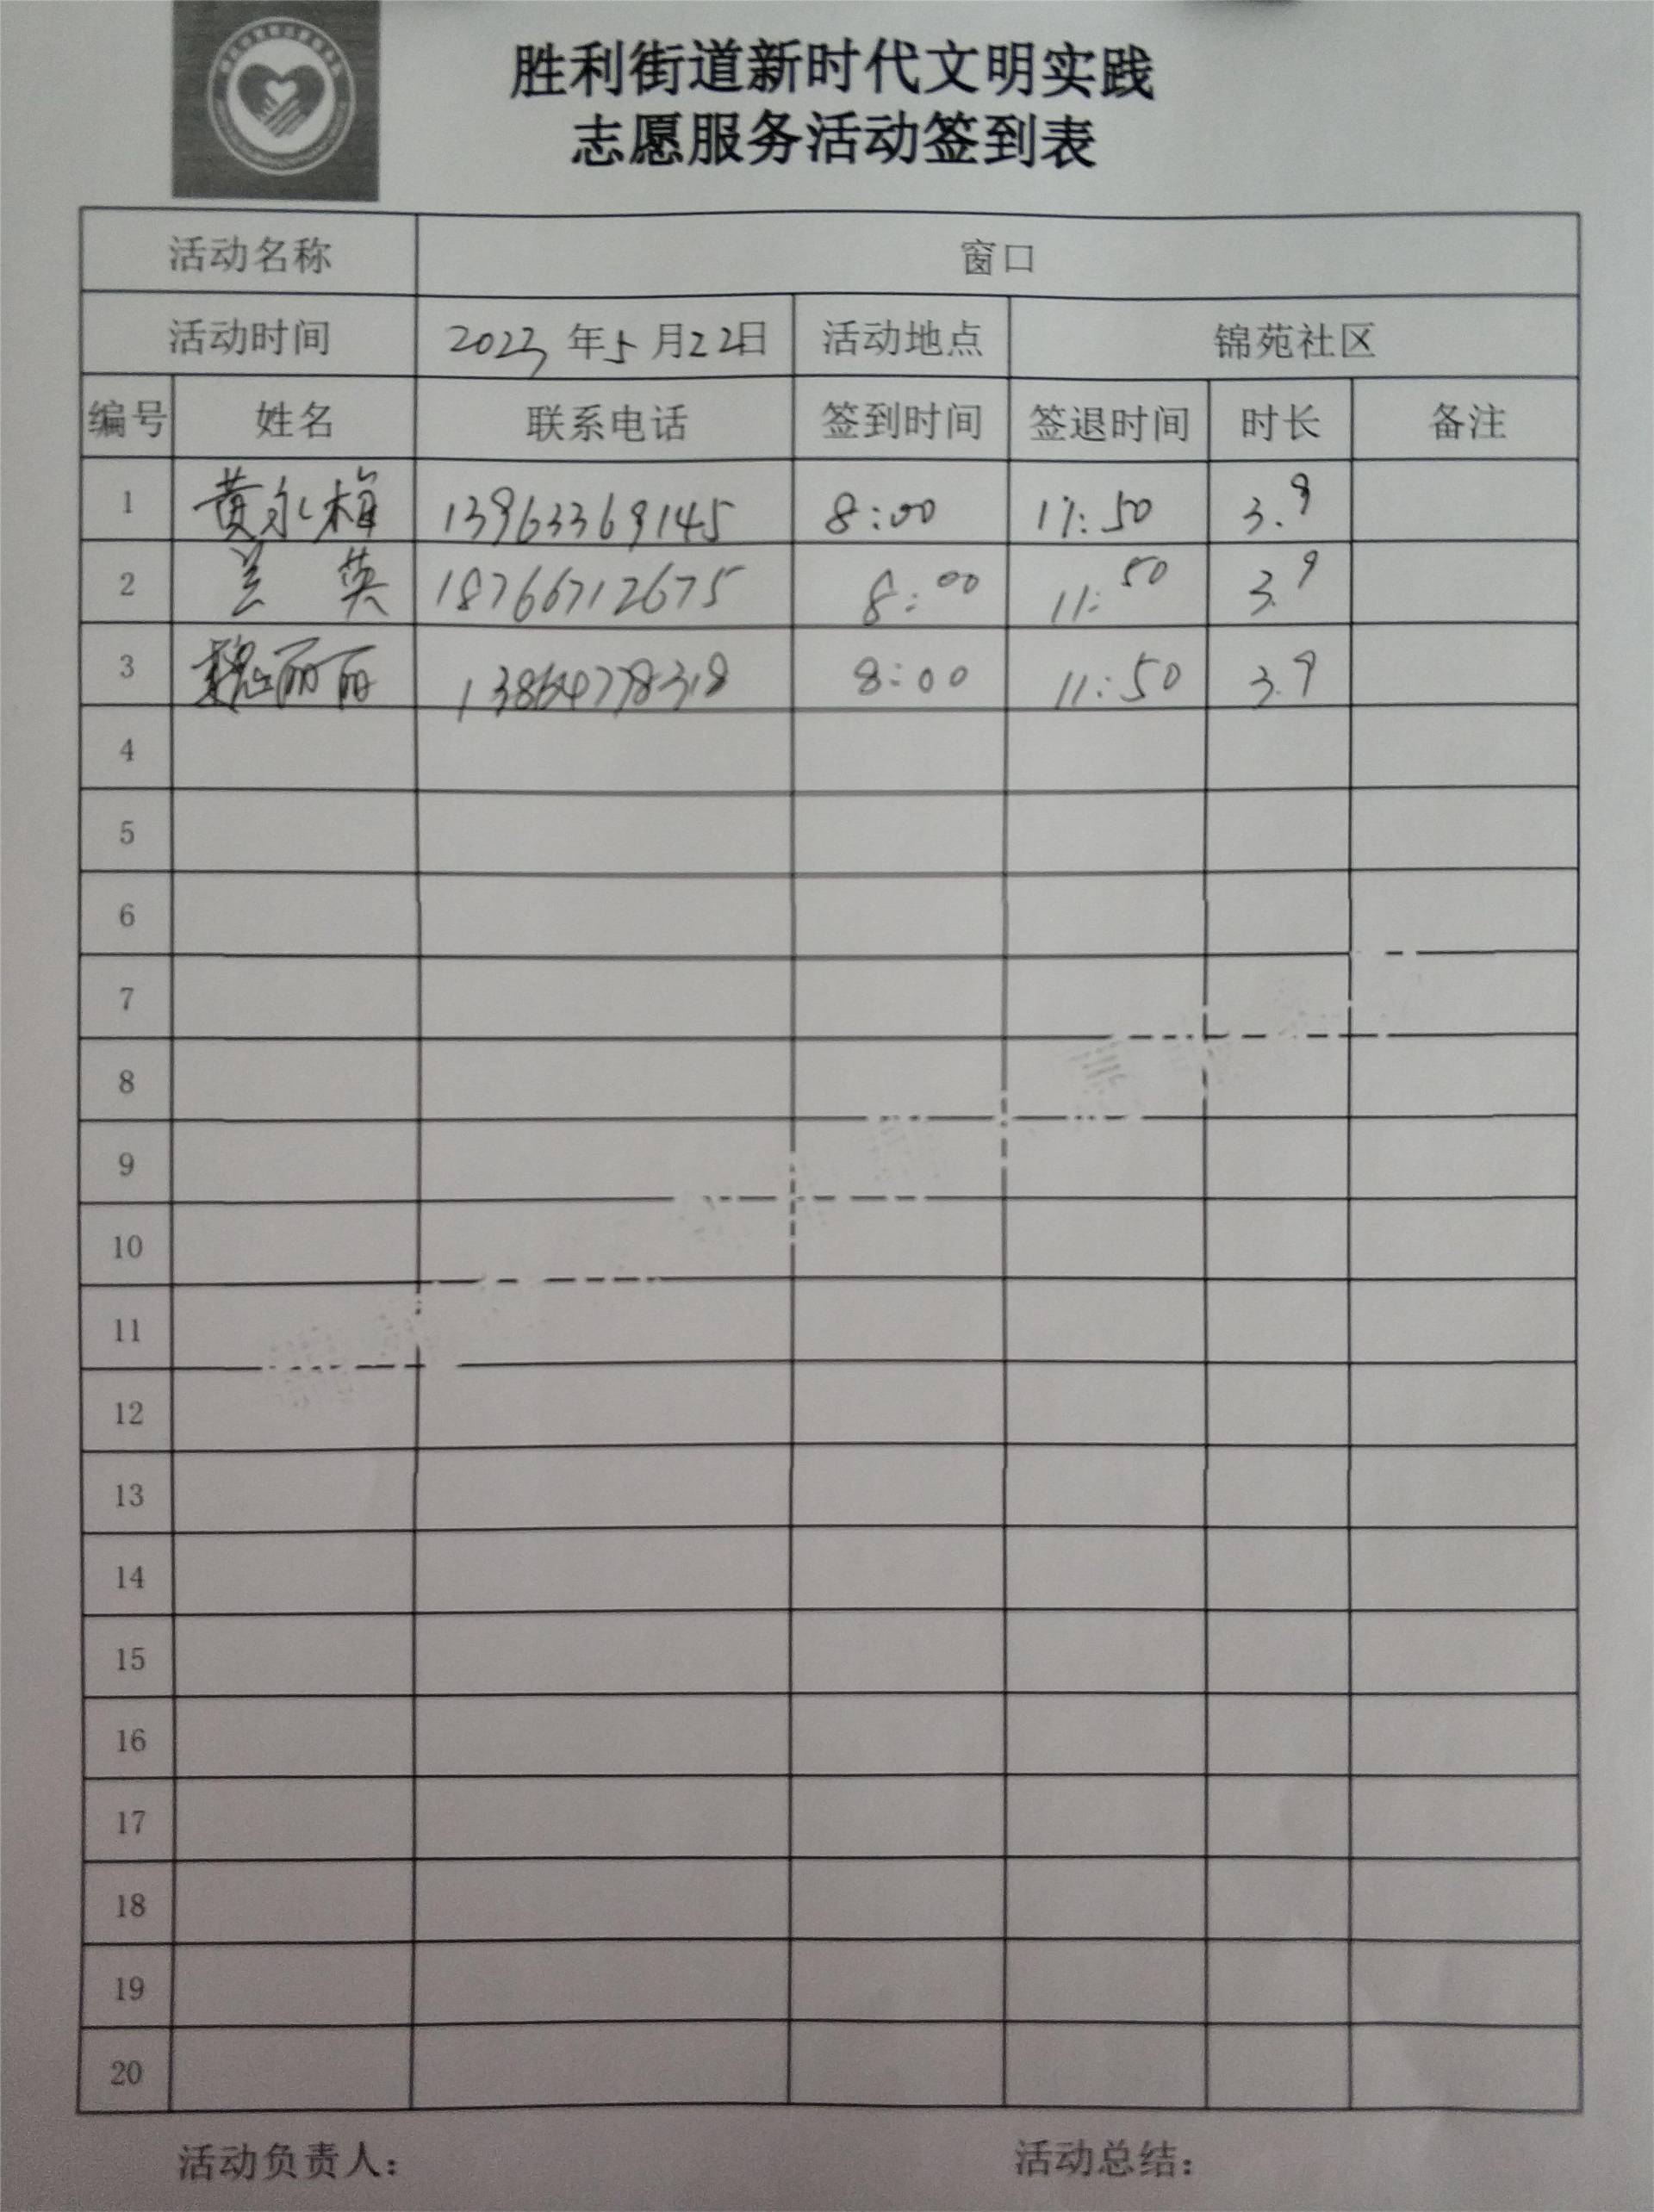 胜利街道新时代文明实践
志愿服务活动签到表
活动名称 窗口
活动时间 2023年5月22日 活动地点 锦苑社区
编号 姓名 联系电话 签到时间 签退时间 时长 备注
1 黄永梅 13963369145 8:00 11:50 3.9
2 兰英 18766712675 8:00 11:50 3.9
3 魏丽丽 13864778318 8:00 11:50 3.9
4
5
6
7
8
9
10
11
12
13
14
15
16
17
18
19
20
活动负责人: 活动总结: